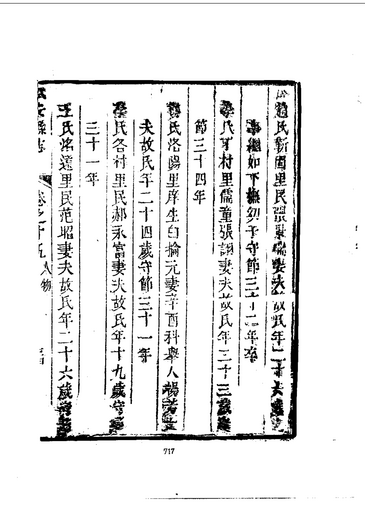 氏新里民張瑞妻夫故氏年二十六歲
如下撫幼子守節三十二年卒
氏村里儒童張妻夫故氏年二十三歲
節三十四年
氏洛陽里庠生白掄元妻辛酉科舉人楊
夫故氏年二十四歲守節三十一年
氏各村里民郝永富妻夫故氏年十九歲守
三十一年
王氏洺遠里民范昭妻夫故氏年二十六歲守
卷之十九 人物
717